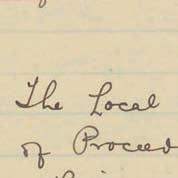 The Local
of Proceed